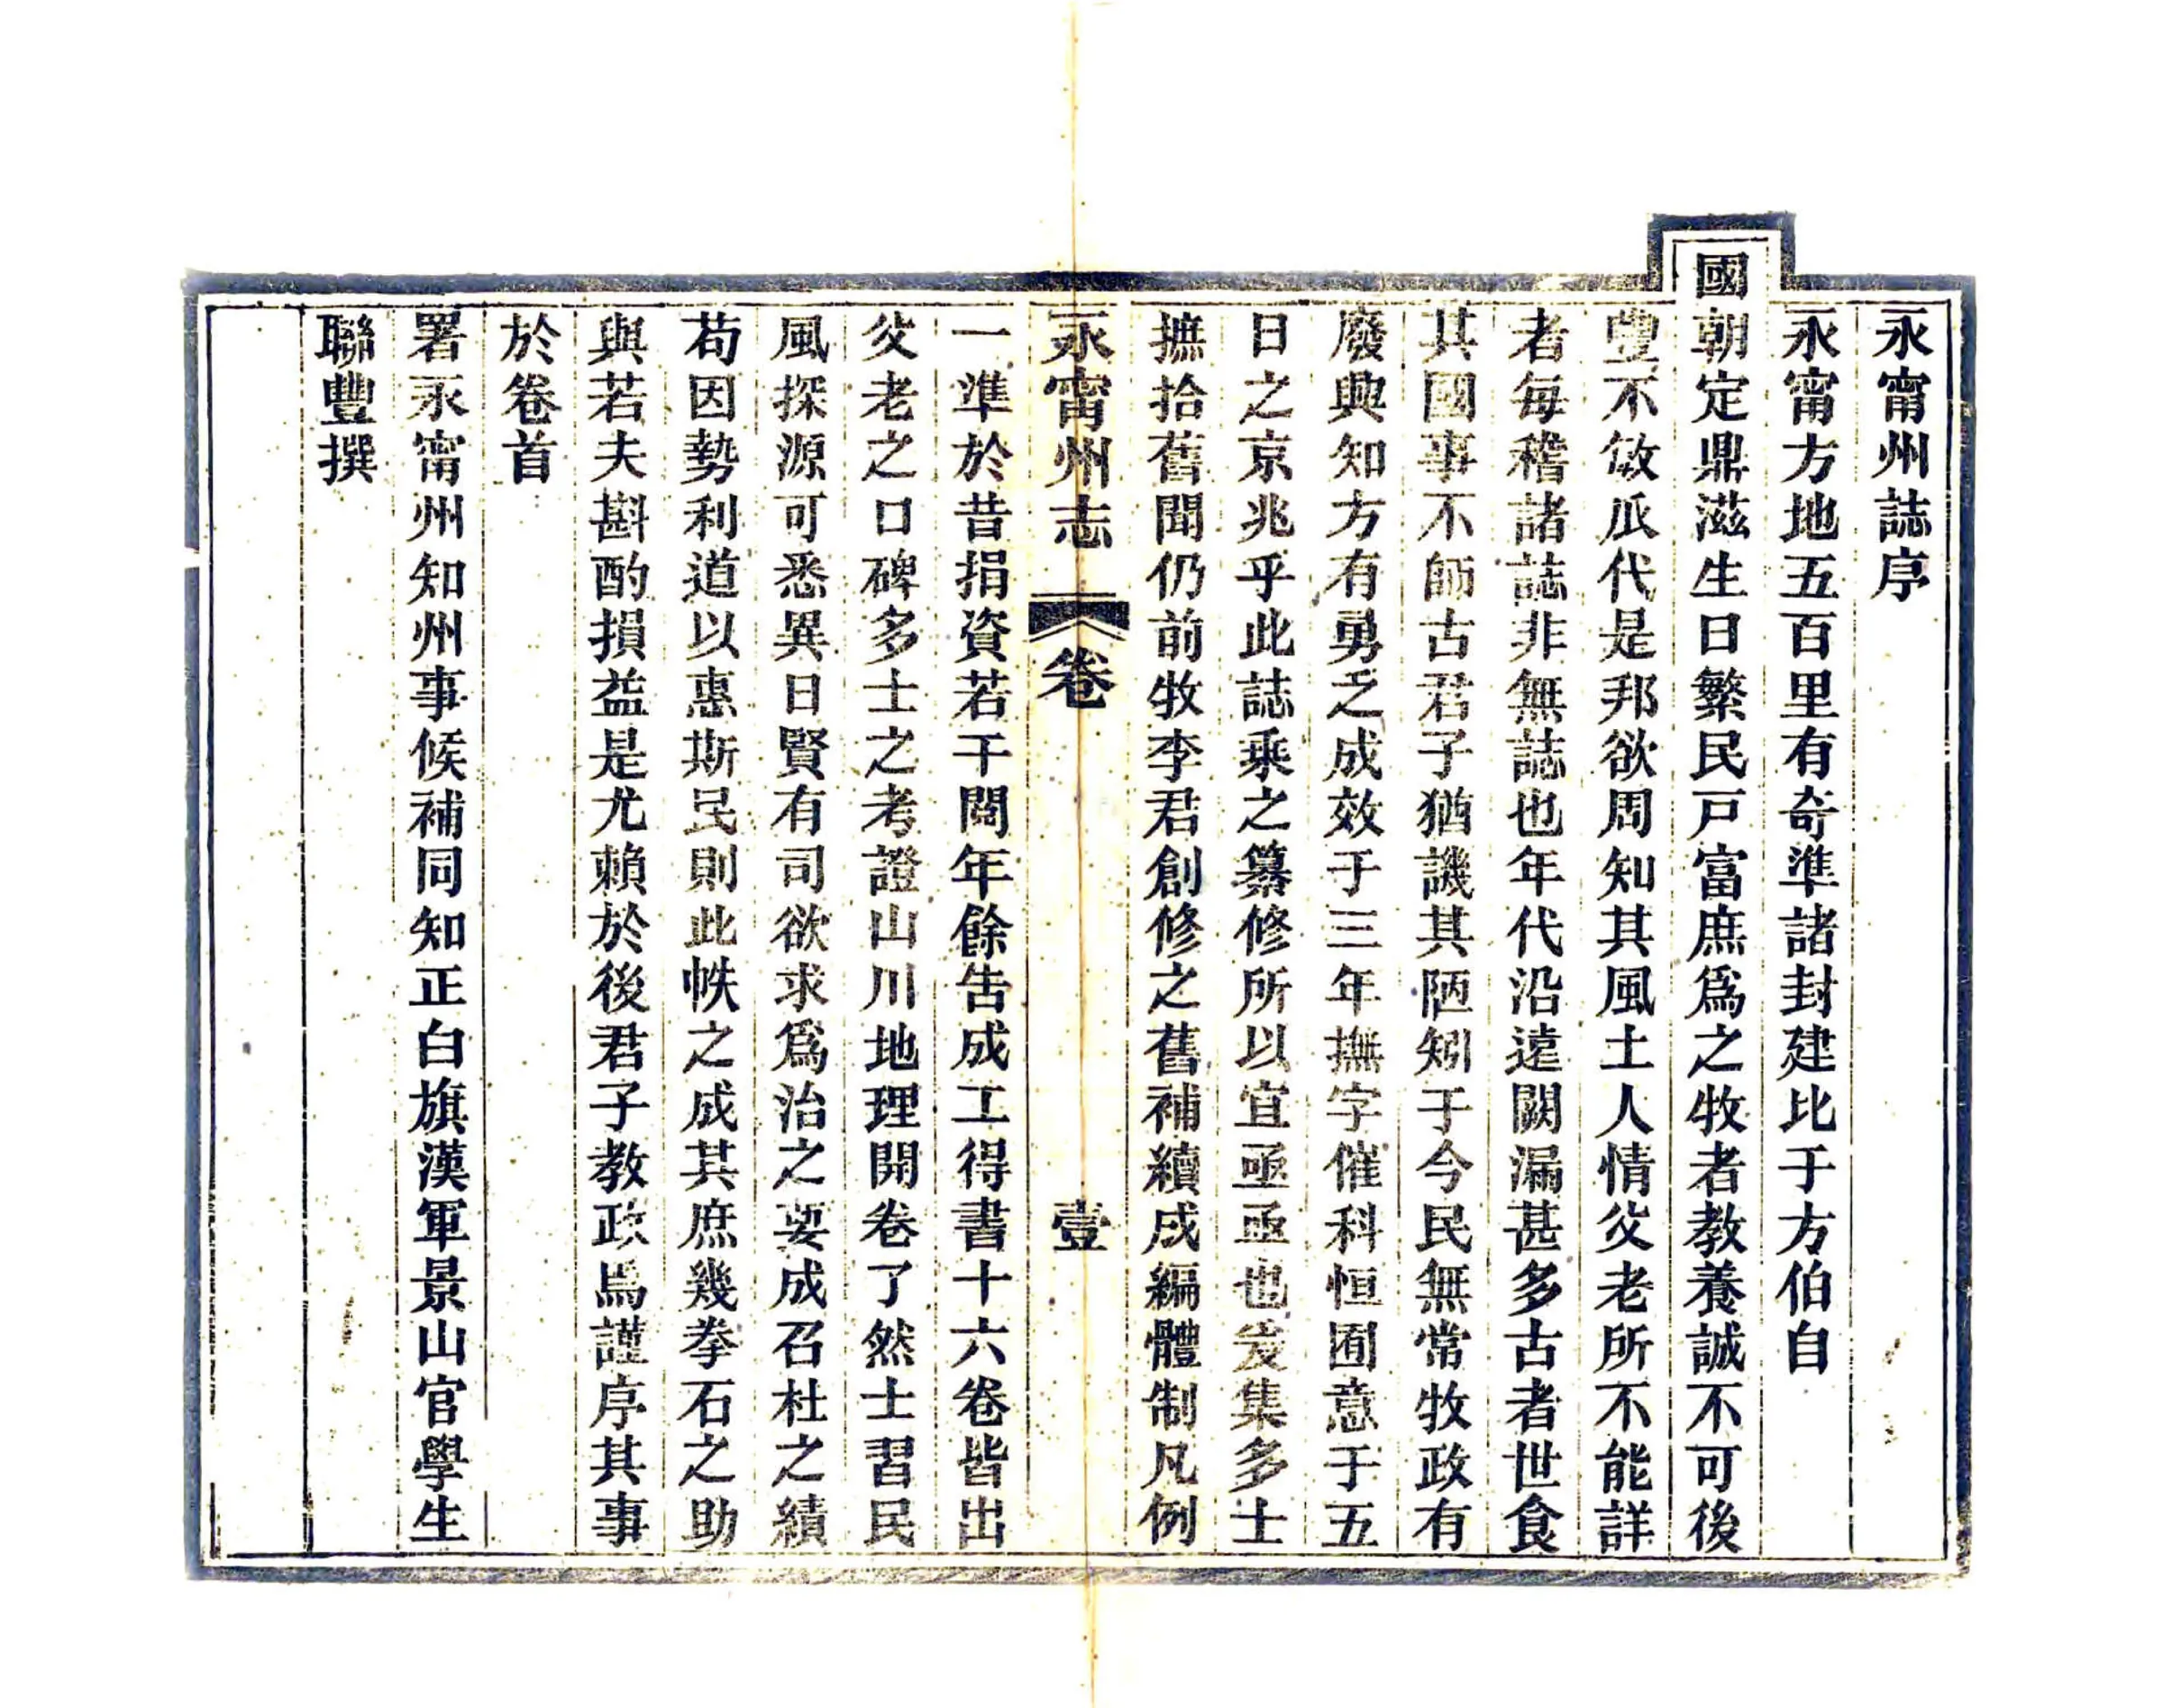 永甯州誌序
永甯方地五百里有奇準諸封建比于方伯自
國朝定鼎滋生日繁民戸富庶爲之牧者教養誠不可後
豐不敏瓜代是邦欲周知其風土人情父老所不能詳
者每稽諸誌非無誌也年代沿遠闕漏甚多古者世食
其國事不師古君子猶譏其陋矧于今民無常牧政有
廢興知方有勇乏成效于三年撫字催科恒囿意于五
日之京兆乎此誌乘之纂修所以宜亟亟也爰集多士
摭拾舊聞仍前牧李君創修之舊補續成編體制凡例
永甯州志 卷 壹
一準於昔捐資若干閱年餘告成工得書十六卷皆出
父老之口碑多士之考證山川地理開卷了然士習民
風探源可悉異日賢有司欲求爲治之要成召杜之績
苟因勢利道以惠斯民則此帙之成其庶幾拳石之助
與若夫斟酌損益是尤賴於後君子教政焉謹序其事
於卷首
署永甯州知州事候補同知正白旗漢軍景山官學生
聯豐撰